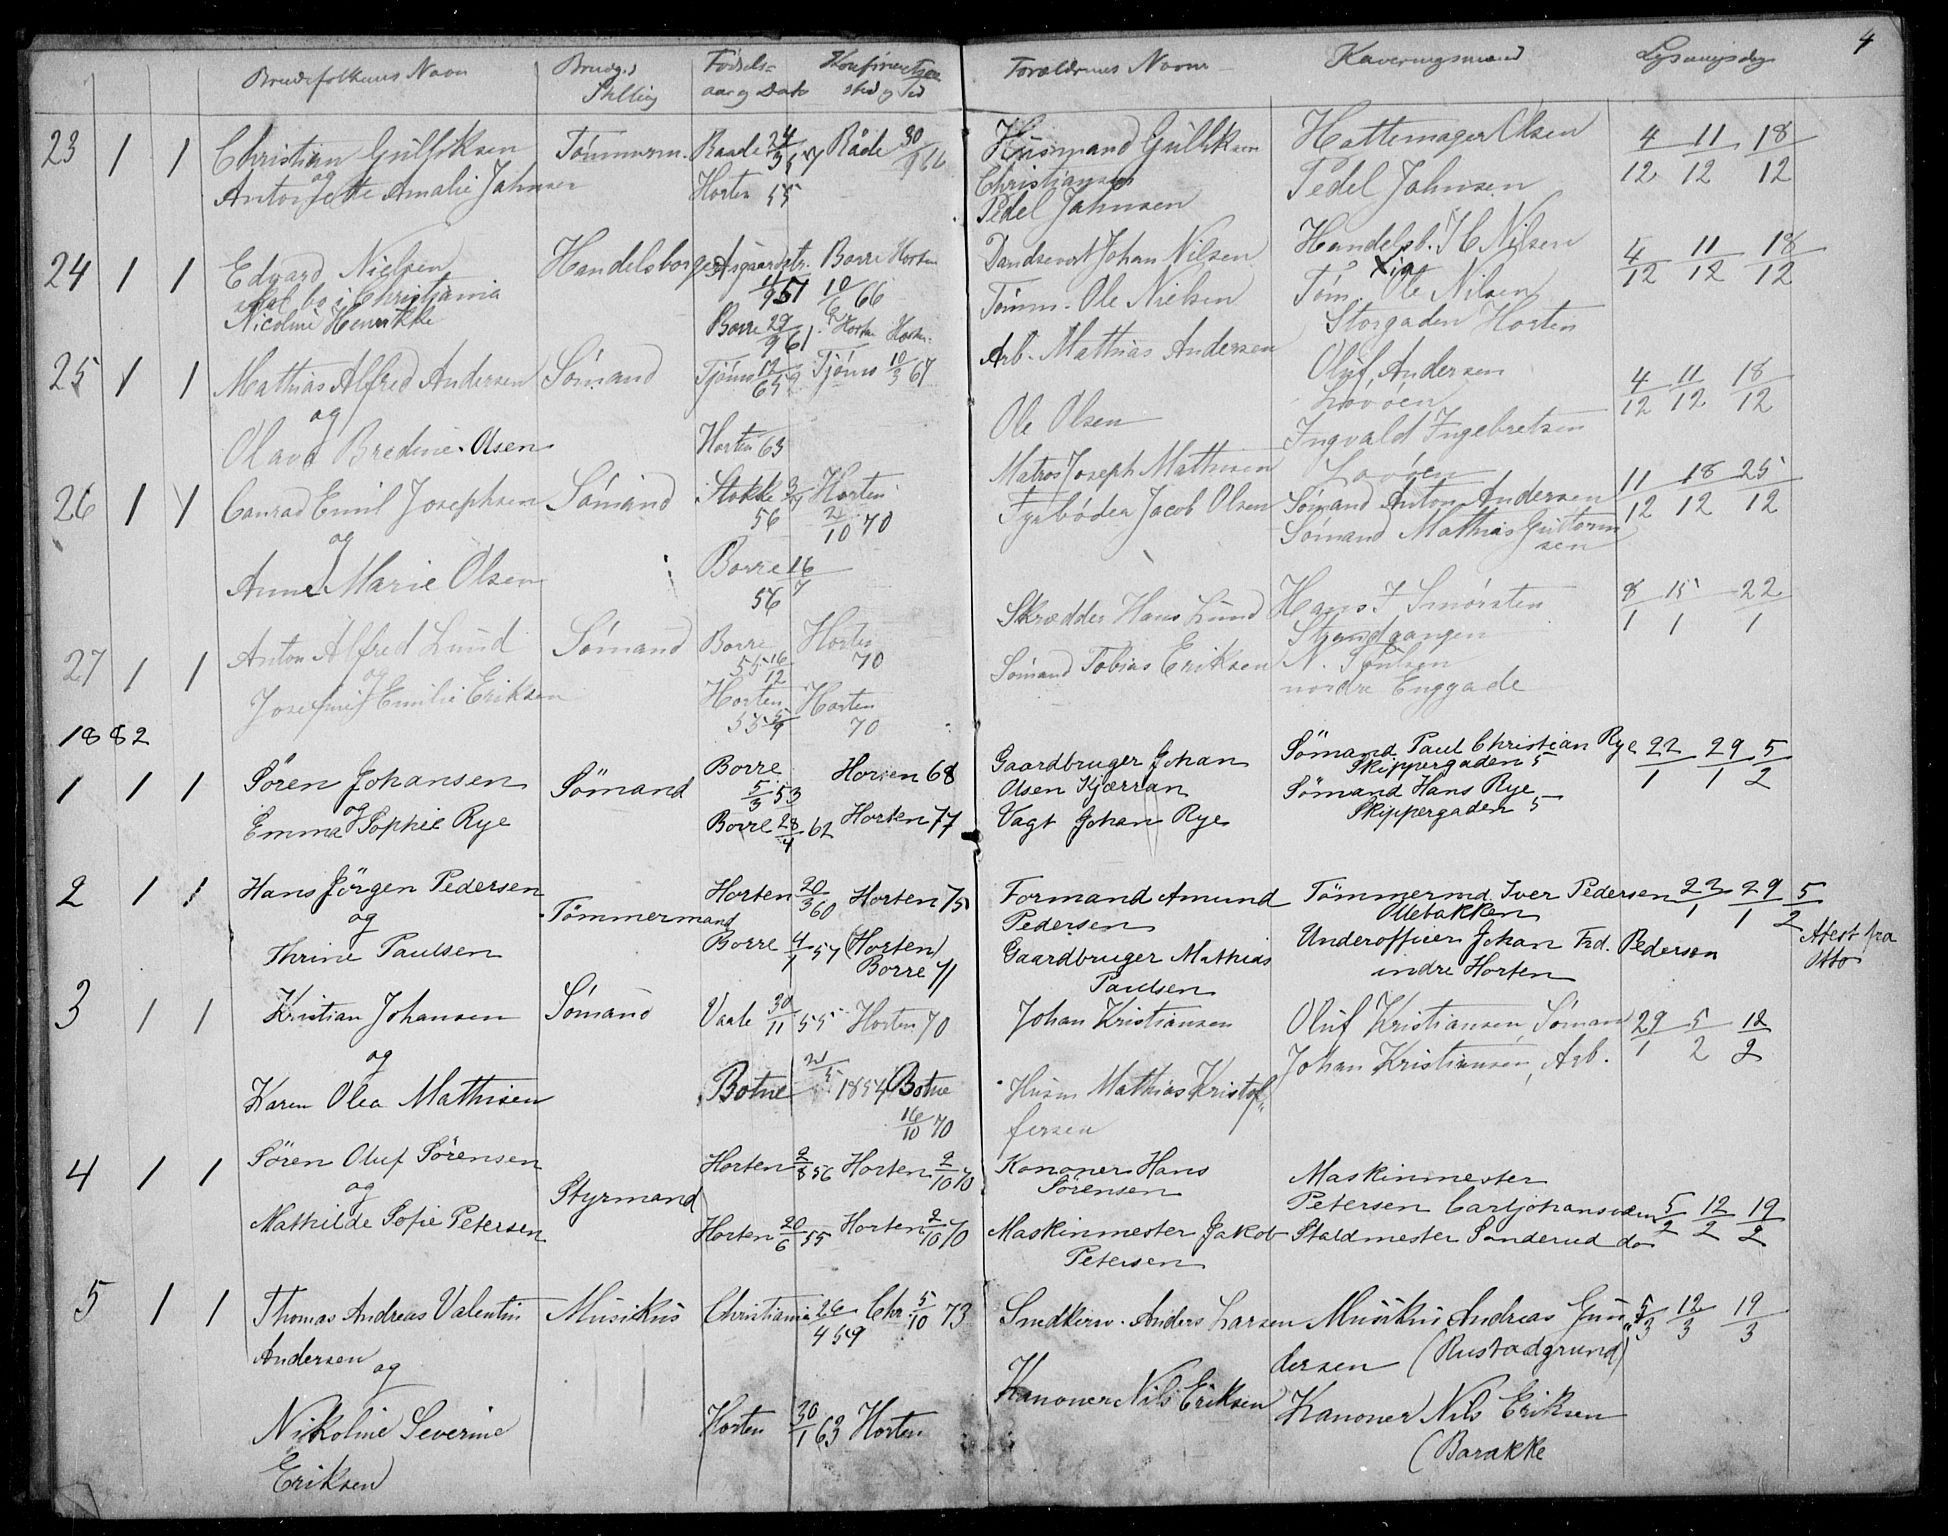 4
Brudefolkenes Navn Brudgs Stilling Fødsels= aar og Dato Konfirmations sted og Tid Forældrenes Navne Kaveringsmænd Lysningsdag
23 1 1 Christian Gulliksen Tømmerm. Raade 24/3 57 Råde 30/9
og
Antonjette Amalie Jahnsen Horten 55
Husmand Gulliksen Christiansen Hattemager Olsen 4/12 11/12 18/12
Pedel Jahnsen Pedel Jahnsen
24 1 1 Edvard Nielsen Handelsborger Aasgaardstr. 11/9 51 Borre Horten 10/6 66
skal bo i Christiania
Nicoline Henrikke Borre 29/9 61 Horten Horten
Johan Nilsen Handelsb. H Nilsen 4/12 11/12 18/12
Tömm. Ole Nielsen Töm. Ole Nilsen
Storgaden Horten
25 1 1 Mathias Alfred Andersen Sømand Tjömö Tjömö 10/3 67
og
Olava Bredine Olsen Horten 63
Arb. Mathias Andersen Oluf Andersen 4/12 11/12 18/12
Løvøen
Ole Olsen Ingvald Ingebretsen
Løvøen
26 1 1 Conrad Emil Josephsen Sømand Stokke 56 Horten 2/10 70
og
Anne Marie Olsen Borre 16/7 56
Matros Joseph Mathisen Sømand Anton Andersen 11/12 18/12 25/12
Fyrbøder Jacob Olsen Sømand Mathias Guttorm
sen
27 1 1 Anton Alfred Lund Sømand Borre 55 16/12 Horten 70
og
Josefine Emilie Eriksen Horten 55 Horten 70
Skrædder Hans Lund Hans J Smörsten 8/1 15/1 22/1
Strandgangen
Sømand Tobias Eriksen N. Poulsen
nordre Enggade
1882
1 1 1 Søren Johansen Sømand Borre 5/3 53 Horten 68
og
Emma Sophie Rye Borre 28/4 62 Horten 77
Gaardbruger Johan Sømand Paul Christian Rye 22/1 29/1 5/2
Olsen Kjærran Skippergaden 5
Vagt Johan Rye Sømand Hans Rye
Skippergaden 5
2 1 1 Hans Jörgen Pedersen Tömmermand Horten 20/3 60 Horten 75
og
Thrine Paulsen Borre 4/1 57 (Horten) Borre 71
Formand Amund Tömmermd. Iver Pedersen 22/1 29/1 5/2
Pedersen Ollebakken
Gaardbruger Mathias Underofficer Johan Frd. Pedersen Atest fra Otto
Paulsen indre Horten
3 1 1 Kristian Johansen Sømand Vaale 30/11 55 Horten 70
og
Karen Olea Mathisen Botne 1854 Botne 16/10 70
Johan Kristiansen Oluf Kristiansen, Søman 29/1 5/2 12/2
Johan Kristiansen, Arb.
Husm Mathias Kristof
fersen
4 1 1 Søren Oluf Sørensen Styrmand Horten 2/8 56 Horten 2/10 70
og
Mathilde Sofie Petersen Horten 20/6 55 Horten 2/10 70
Kononer Hans Maskinmester
Sørensen Petersen Carljohansværn 5/2 12/2 19/2
Maskinmester Jakob Staldmester Sönderud do
Petersen
5 1 1 Thomas Andreas Valentin Musikus Christiania 26/4 59 Chr. 5/10 73
Andersen og
Nikoline Severine Horten 30/1 63 Horten
Eriksen
Snedkersv. Anders Larsen Musikus Andreas Gun 5/3 12/3 19/3
dersen (Rustadgrund)
Kanoner Nils Eriksen Kanoner Nils Eriksen
(Barakke